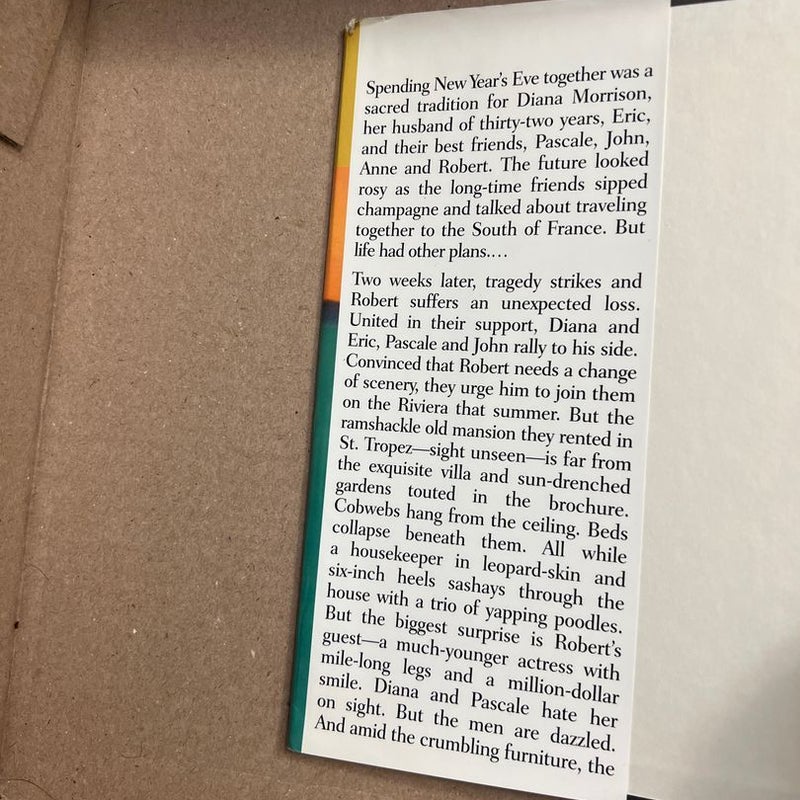 Spending New Year's Eve together was a
sacred tradition for Diana Morrison,
her husband of thirty-two years, Eric,
and their best friends, Pascale, John,
Anne and Robert. The future looked
rosy as the long-time friends sipped
champagne and talked about traveling
together to the South of France. But
life had other plans....
Two weeks later, tragedy strikes and
Robert suffers an unexpected loss.
United in their support, Diana and
Eric, Pascale and John rally to his side.
Convinced that Robert needs a change
of scenery, they urge him to join them
on the Riviera that summer. But the
ramshackle old mansion they rented in
St. Tropez—sight unseen—is far from
the exquisite villa and sun-drenched
gardens touted in the brochure.
Cobwebs hang from the ceiling. Beds
collapse beneath them. All while
a housekeeper in leopard-skin and
six-inch heels sashays through the
house with a trio of yapping poodles.
But the biggest surprise is Robert's
guest—a much-younger actress with
mile-long legs and a million-dollar
smile. Diana and Pascale hate her
on sight. But the men are dazzled.
And amid the crumbling furniture, the